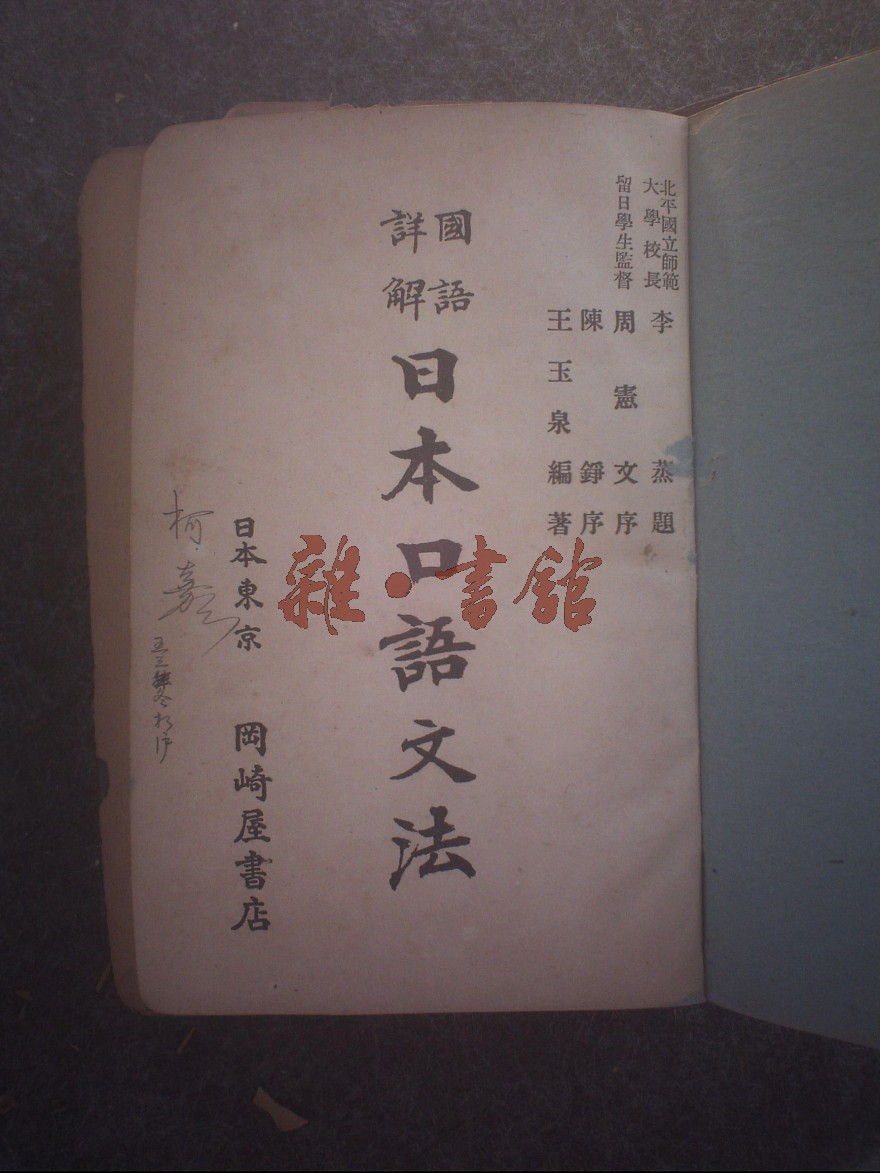 北平國立師範
大學校長
李蒸題
留日學生監督
周憲文序
陳錚序
王玉泉編著
國語
詳解
日本口語文法
日本東京 岡崎屋書店
雜·書館
柯